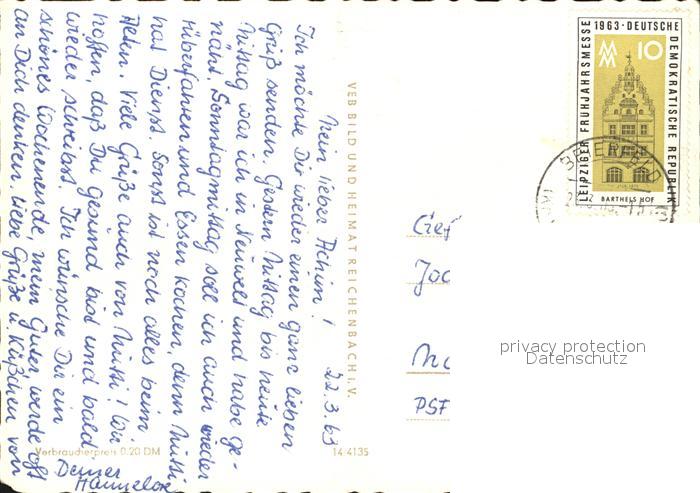 22.3.63
Mein lieber Achim!
Ich möchte Dir wieder einen ganz lieben
Gruß senden. Gestern Mittag bis heute
Mittag war ich in und habe ge-
näht. Sonntagmittag soll ich auch wieder
rüberfahren und Essen kochen, denn Mutti
hat Dienst. Sonst ist noch alles beim
Alten. Viele Grüße auch von Mutti! Wir
hoffen, daß Du gesund bist und bald
wieder schreibst. Ich wünsche Dir ein
schönes Wochenende, mein Guter werde oft
an Dich denken. Liebe Grüße u. Küßchen von
Deiner
Hannelore
VEB BILD UND HEIMAT REICHENBACH i. V.
Verbraucherpreis 0.20 DM
14-4135
LEIPZIGER FRÜHJAHRSMESSE 1963 · DEUTSCHE DEMOKRATISCHE REPUBLIK
MM
10
BARTHELS HOF
PSF
privacy protection
Datenschutz